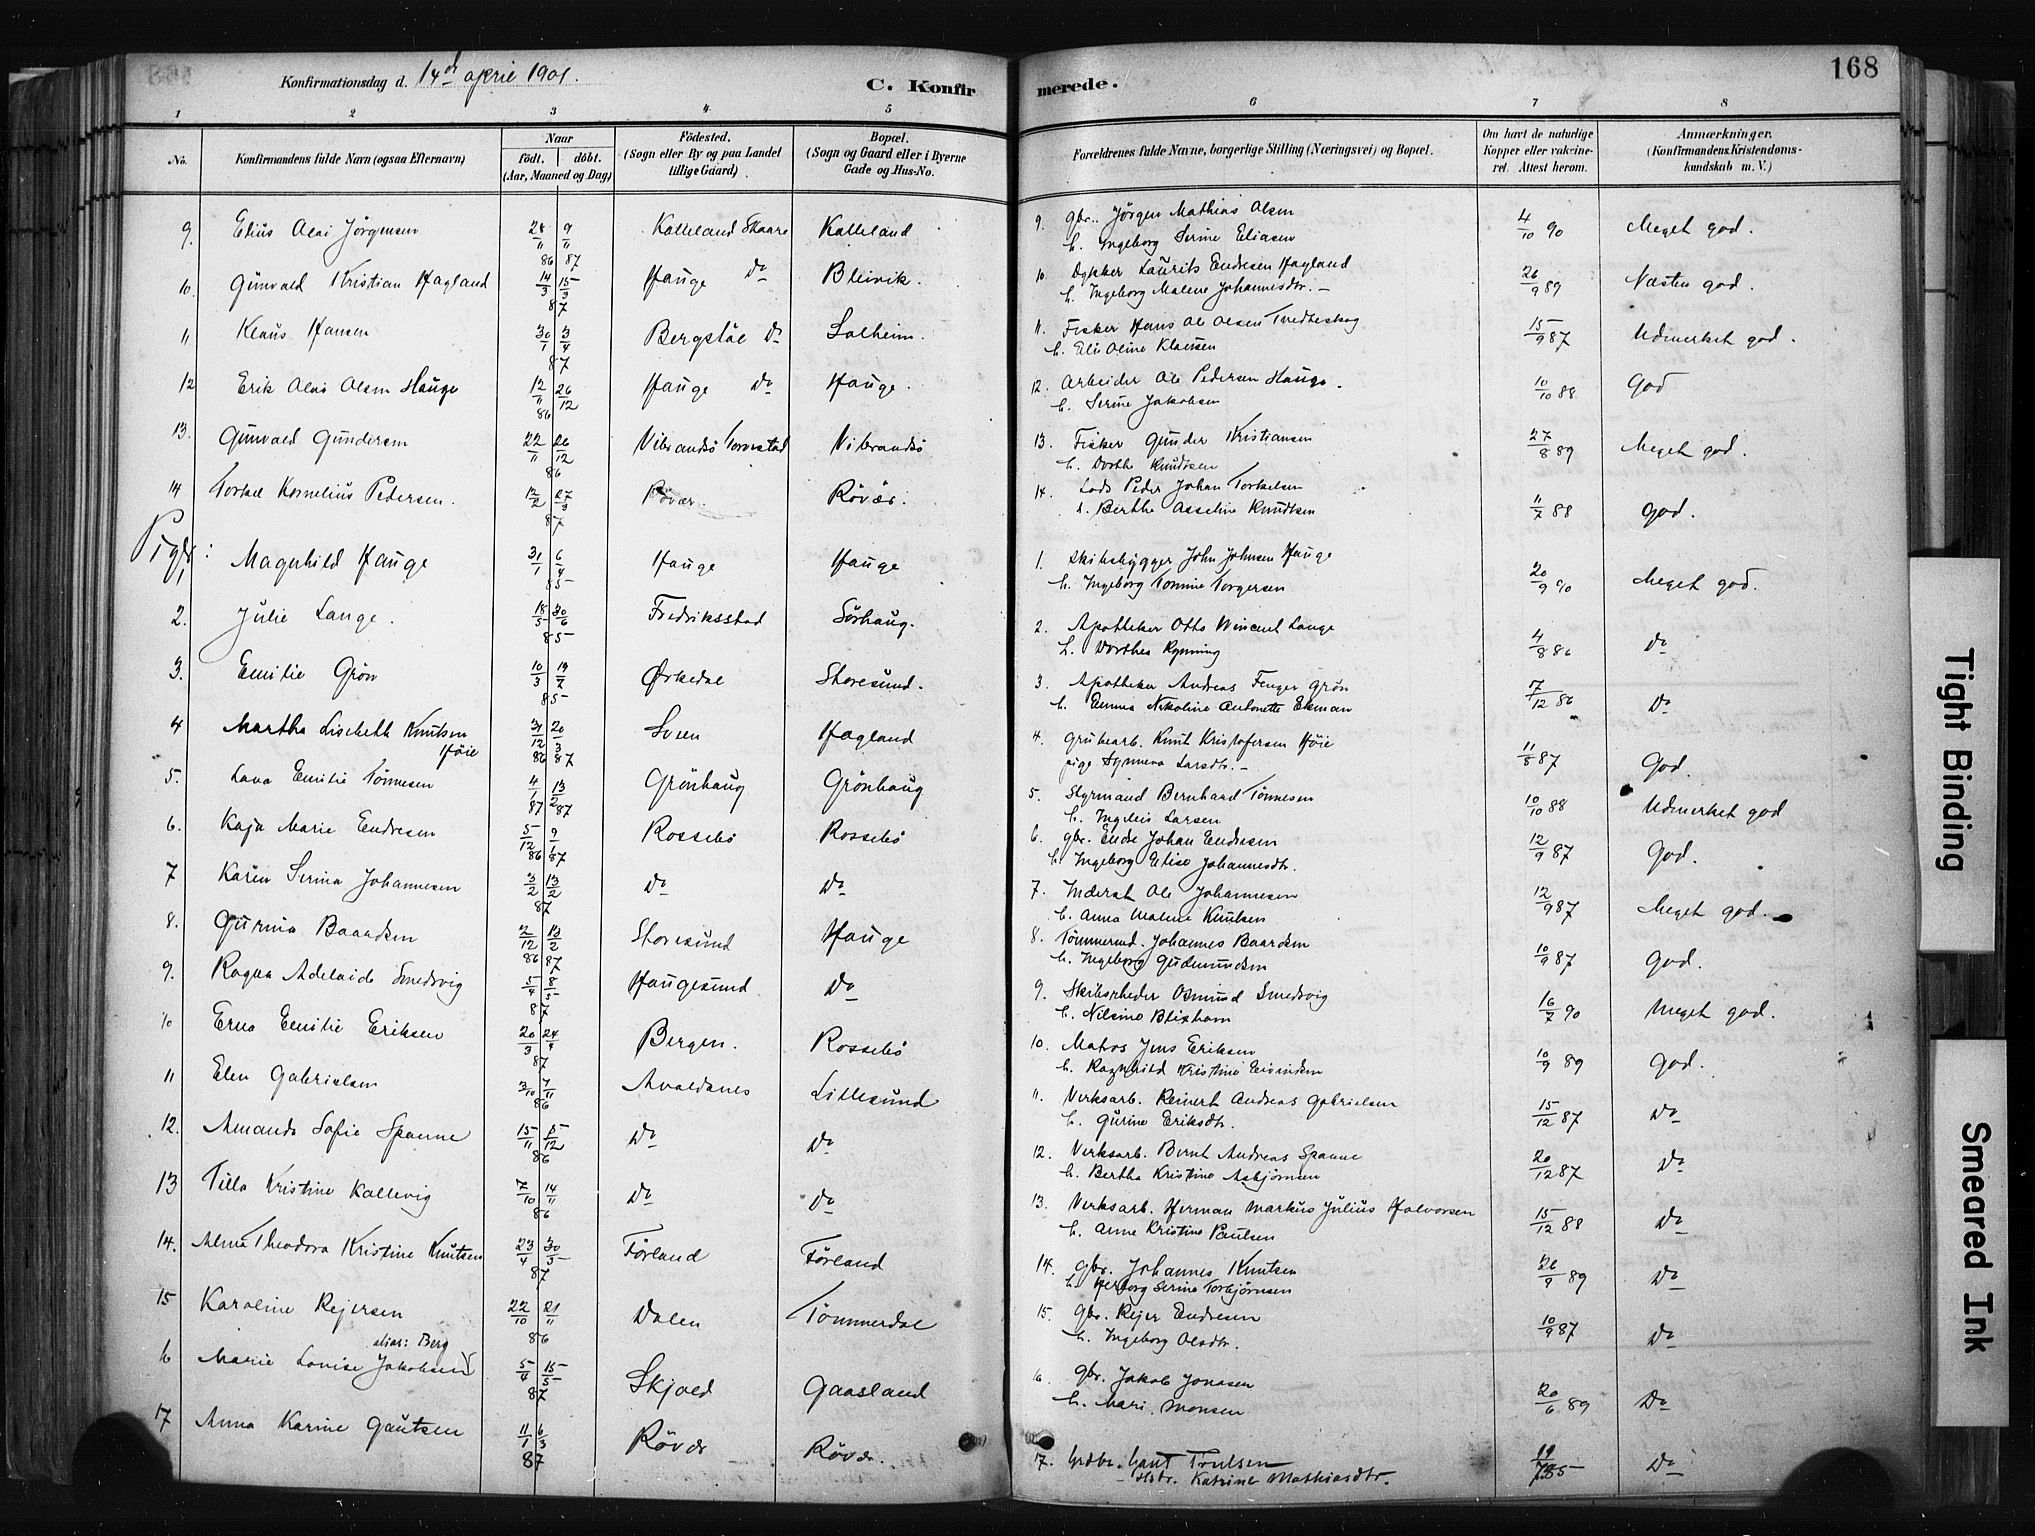 Konfirmationsdag d. 14de april 1901.
C. Konfirmerede.
168
1 2 3 4 5 6 7 8
No.
Konfirmandens fulde Navn (ogsaa Efternavn)
Naar
födt. döbt.
(Aar, Maaned og Dag)
Födested.
(Sogn eller By og paa Landet
tillige Gaard)
Bopæl.
(Sogn og Gaard eller i Byerne
Gade og Hus-No.
Forældrenes fulde Navne, borgerlige Stilling (Næringsvei) og Bopæl.
Om havt de naturlige
Kopper eller vakcine-
ret. Attest herom.
Anmærkninger.
(Konfirmandens Kristendoms-
kundskab m. V.)
9. Elius Olai Jörgensen 28/11 86 9/11 87 Kalleland Skaare Kalleland
9. Gbr. Jörgen Mathias Olsen 4/10 90 Meget god.
h. Ingeborg Serine Eliasen
10. Gunvald Kristian Hagland 14/3 15/3 87 Hauge Do Bleivik.
10. Dykker Laurits Endresen Hagland 26/9 89 Næsten god.
h. Ingeborg Malene Johannesdtr. –
11 Klaus Hansen 30/1 3/4 87 Bergstöl Do Solheim.
11. Fisker Hans Ol Olsen Tvedteskog 15/9 87 Udmerket god.
h. Eli Oline Klausen
12 Erik Olai Olsen Hauge 12/11 26/12 86 Hauge Do Hauge.
12. Arbeider Ole Pedersen Hauge. 10/10 88 God
h. Serine Jakobsen
13. Gunvald Gundersen 22/11 26/12 86 Vibrandsö Torvestad Vibrandsö
13. Fisker Gunder Kristiansen 27/8 89 Meget god.
h. Dorthe Knudtsen
14 Torkel Kornelius Pedersen. 12/2 27/3 87 Rövær Rövær.
14. Lods Peder Johan Torkelsen 11/7 88 god.
h. Berthe Asseline Knudtsen
Piger:
1 Magnhild Hauge 31/1 6/4 85 Hauge Hauge
1. Skibsbygger John Johnsen Hauge 20/9 90 Meget god.
h. Ingeborg Tomine Torgersen
2. Julie Lange. 18/5 30/6 85 Fredriksstad Sörhaug.
2. Apotheker Otto Wincent Lange 4/8 86 Do
h. Dorthea Rynning
3. Emilie Grön 10/3 19/7 85 Örkedal Storesund.
3. Apotheker Andreas Fenger Grön 7/12 86 Do
h. Emma Nikoline Antonette Ekman
4 Martha Lisebeth Knutsen 31/12 86 20/3 87 Sveen Hagland
Höie
4. Grubearb. Knut Kristofersen Höie 11/8 87 God.
pige Synneva Larsdtr. –
5. Lava Emilie Tönnesen 4/1 87 13/2 87 Grönhaug Grönhaug
5. Styrmand Bernhard Tönnesen 10/10 88 Udmerket god
h. Ingleis Larsen
6. Kaja Marie Endresen 5/12 86 9/1 87 Rossebö Rossebö
6. gbr. Endre Johan Endresen 12/9 87 God.
h. Ingeborg Elise Johannesdtr.
7 Karen Serina Johannesen 3/2 13/2 87 Do Do
7. Inderst Ole Johannesen 12/9 87 Meget god.
h. Anna Malene Knutsen
8. Gurina Baardsen 2/12 86 13/2 87 Storesund Hauge
8. Tömmermd. Johannes Baardsen 10/9 87 God.
h. Ingeborg Gudmundsen
9. Ragna Adelaide Smedsvig 5/4 8/5 87 Haugesund Do
9. Skibsrheder Osmund Smedsvig 16/7 90 Meget god.
h. Nilsine Blixham
10 Erna Emilie Eriksen 20/3 24/4 87 Bergen. Rossebö
10. Matros Jens Eriksen 10/9 89 God.
h. Ragnhild Kristine Eivindsen
11 Elen Gabrielsen 3/10 7/11 86 Avaldsnes Lillesund
11. Verksarb. Reinert Andreas Gabrielsen 15/12 87 Do
h. Gurine Eriksdtr.
12. Amanda Sofie Spanne 15/11 5/12 86 Do Do
12. Verksarb. Bernt Andreas Spanne 20/12 87 Do
h. Bertha Kristine Asbjörnsen
13 Tilla Kristine Kallevig 7/10 14/11 86 Do Do
13. Verksarb. Herman Markus Julius Halvorsen 15/12 88 Do
h. Anne Kristine Paulsen
14. Alma Theodora Kristine Knutsen 23/4 30/5 87 Förland Förland
14. gbr. Johannes Knutsen 26/9 89 Do
h. Herborg Serine Torbjörnsen
15 Karoline Rejersen 22/10 21/11 86 Dalen Tömmerdal
15. Gbr. Rejer Endresen 10/9 87 Do
h. Ingeborg Olsdtr.
alias: Berg
16 Marie Lovise Jakobsen 5/4 15/5 87 Skjold Gaasland
16 gbr. Jakob Jonasen 20/6 89 Do
h. Mari Monsen
17 Anna Karine Gautsen 11/1 6/3 87 Rövær Rövær.
17. Grdbr. Gaut Trulsen 19/7 85 Do
Hstr. Katrine Mathiasdtr.
Tight Binding
Smeared Ink